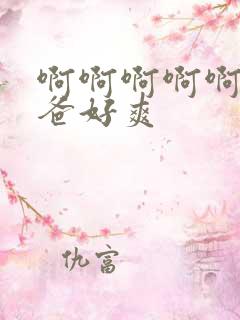 啊啊啊啊啊
爸好爽
仇富